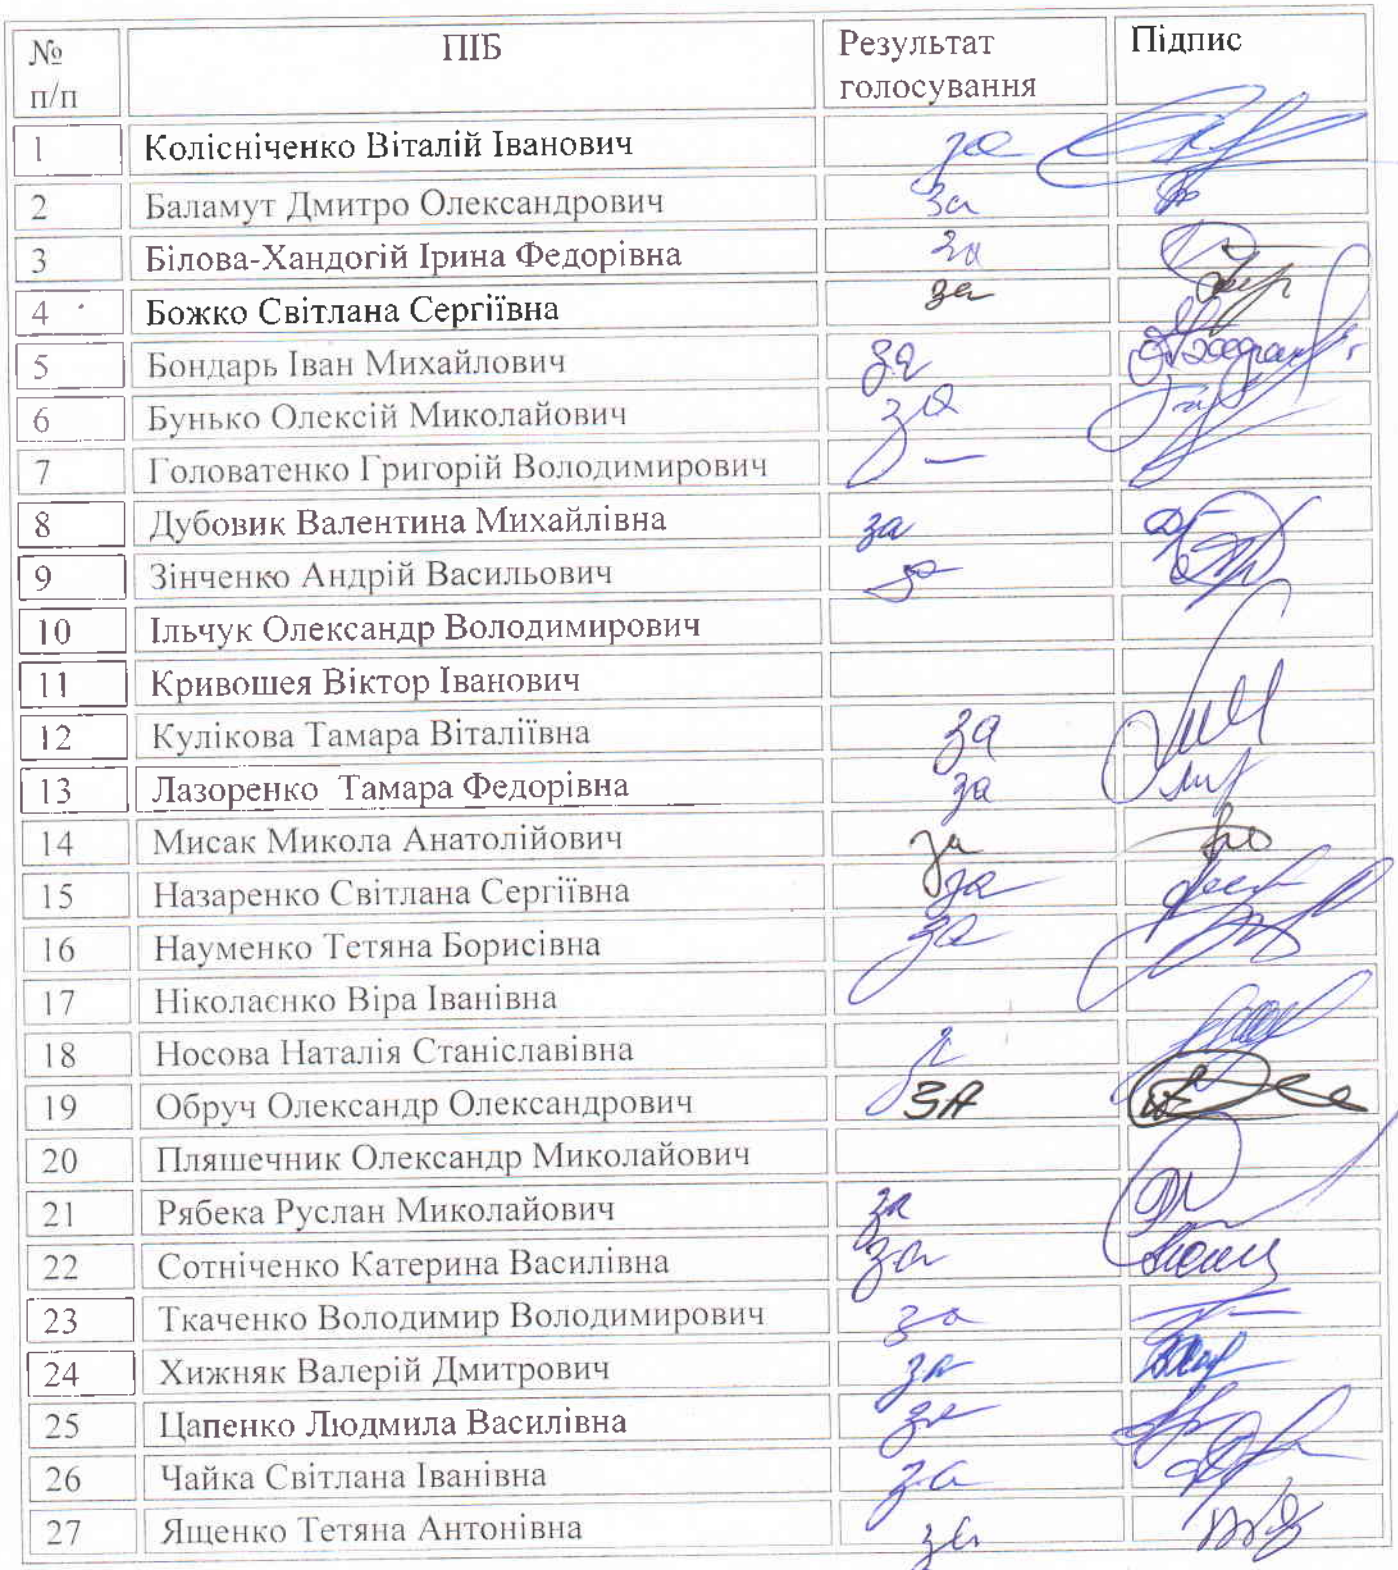 № п/п ПІБ Результат голосування Підпис
1 Колісніченко Віталій Іванович за
2 Баламут Дмитро Олександрович за
3 Білова-Хандогій Ірина Федорівна за
4 Божко Світлана Сергіївна за
5 Бондарь Іван Михайлович за
6 Бунько Олексій Миколайович за
7 Головатенко Григорій Володимирович –
8 Дубовик Валентина Михайлівна за
9 Зінченко Андрій Васильович
10 Ільчук Олександр Володимирович
11 Кривошея Віктор Іванович
12 Кулікова Тамара Віталіївна за
13 Лазоренко Тамара Федорівна за
14 Мисак Микола Анатолійович за
15 Назаренко Світлана Сергіївна за
16 Науменко Тетяна Борисівна за
17 Ніколаєнко Віра Іванівна
18 Носова Наталія Станіславівна
19 Обруч Олександр Олександрович ЗА
20 Пляшечник Олександр Миколайович
21 Рябека Руслан Миколайович за
22 Сотніченко Катерина Василівна за
23 Ткаченко Володимир Володимирович за
24 Хижняк Валерій Дмитрович за
25 Цапенко Людмила Василівна за
26 Чайка Світлана Іванівна за
27 Ященко Тетяна Антонівна за